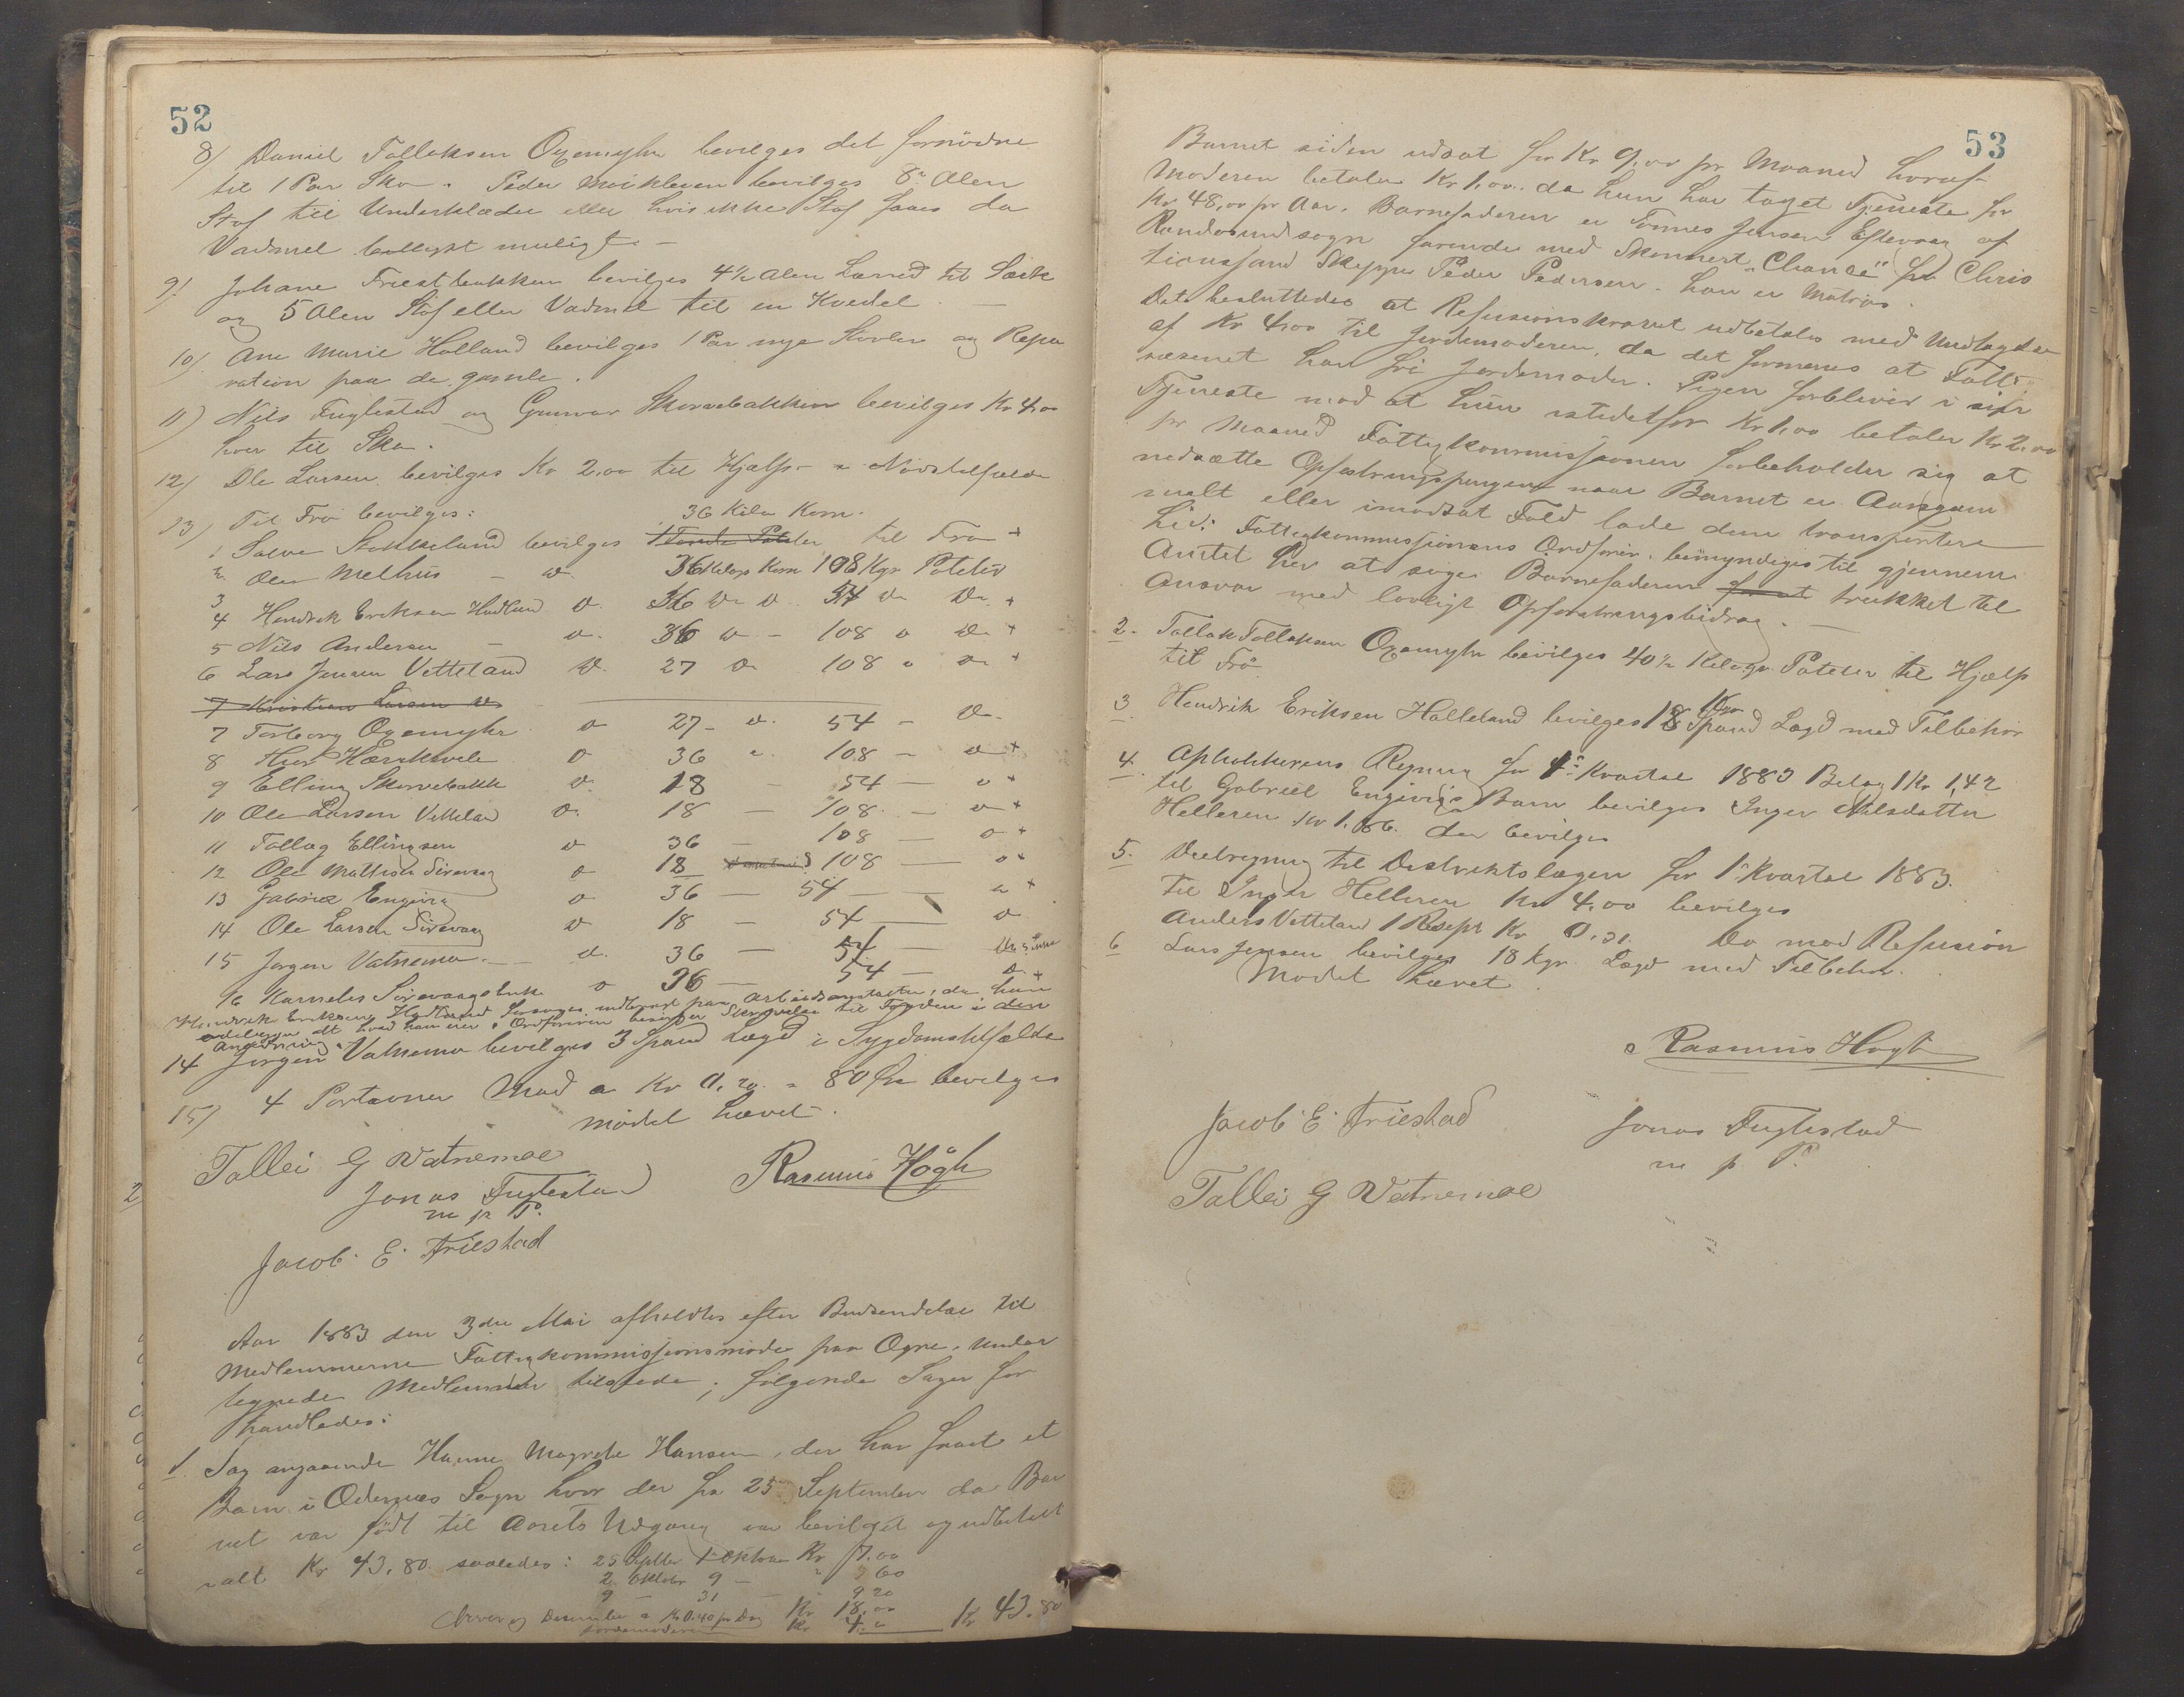 52
8) Daniel Tollaksen Oxemyhr bevilges det fornödne
til 1 Par Sko. Peder Moikleven bevilges 8 Alen
Stof til Underklæder eller hvis ikke Stof faaes da
Vadmel billigst muligt. —
9) Johane Friestbakken bevilges 4½ Alen Lærred til Særk
og 5 Alen Stof eller Vadmel til en Kvedel. —
10) Ane Marie Holland bevilges 1 Par nye Stovler og Repa
ration paa de gamle.
11) Nils Fuglestad og Gunvor Skorvebakken bevilges Kr 4,00
hver til Sko.
12) Ole Larsen bevilges Kr 2,00 til Hjælp i Nödstilfælde
13) Til Frö bevilges:
36 Kilo Korn.
1 Salve Stokkeland bevilges 1 Tonde Poteter til Frö +
2. Olea Melhus — do 36 Kilogr Korn 108 Kgr Poteter
3
4 Hendrik Eriksen Hadland do. 36 do do 54 do do. +
5 Nils Andersen — do. 36 do — 108 do do +
6 Lars Jensen Vetteland do. 27 do 108 do do +
7 Kristian Larsen do
7 Torborg Oxemyhr do 27 — do. 54 — do.
8 Hærikvele do 36 " 108 — do +
9 Elling Skorvebakk do. 18 — 54 — do +
10 Ole Larsen Vetteland do. 18 — 108 — do +
11 Tollag Ellingsen do 36 — 108 — do +
12 Ole Mattisen Sirevaag do 18 108 — do +
13 Gabriel Engivig do 36 — 54 — do +
14 Ole Larsen Sirevaag do 18 — 54 — do
15 Jorgen Vatnemo. — do. 36 — 54 — do
16 Karnelius Sirevaagsbuk do 36 — 54 — do +
Hendrik Eriksen Hadland forsøges indbragt paa Arbeidsanstalten, da han
ødelægger alt hvad han eier. Ordføreren besørger Skrivelse til Fogden i den
Anledning.
14 Jörgen Vatnemo bevilges 3 Spand Lægd i Sygdomstilfælde
15) 4 Portioner Mad a Kr 0,20. = 80 Øre bevilges
Mödet hævet.
Tollei G Vatnemoe
Rasmus Högh
Jonas Fuglestad
m p P.
Jacob E Friestad
Aar 1883 den 3die Mai afholdtes efter Budsendelse til
Medlemmerne Fattigkommissjonsmöde paa Ogne. Under
tegnede Medlemmer tilstede; fölgende Sager for
handledes:
1. Sag angaaende Hanne Magrete Hansen, der har faaet et
Barn i Oddernæs Sogn hvor der fra 25 September da Bar
net var födt til Aarets Udgang var bevilget og udbetalt
ialt Kr 43,80. saaledes: 25 Septbr 1 Oktober Kr 7.00
2 Oktobr 9 — " 3 60
9 — 31 — " 9 20
Novbr og December a Kr 0,40 pr Dag Kr 18,00
Jordemoderen Kr 4. " Kr 43.80
53
Barnet siden udsat for Kr 9,00 pr Maaned hvoraf
Moderen betaler Kr 1,00. da hun har taget Tjeneste for
Kr 48,00 pr Aar. Barnefaderen er Tonnes Jensen Eftevaag af
Randösundsogn farende med Skonnert "Chance" fra Chris
tianssand Skipper Peder Pedersen. han er Matros.
Det besluttedes at Refusionskravet udbetales med Undtagelse
af Kr 4,00 til Jordemoderen, da det formenes at Fattig
væsenet har fri Jordemoder. Pigen forbliver i sin
Tjeneste mod at hun istedetfor Kr 1,00 betaler Kr 2,00
pr Maaned Fattigkommissjonen forbeholder sig at
nedsætte Opfostringspengene naar Barnet er Aarsgam
melt eller imodsat Fald lade dem transportere
hid. Fattigkommissjonens Ordförer. bemyndiges til gjennem
Amtet her at söge Barnefaderen for at trukket til
Ansvar med lovligt Opfostringsbidrag. —
2. Tollak Tollaksen Oxemyhr bevilges 40½ Kilogr. Poteter til Hjælp
til Frö
3. Hendrik Eriksen Halleland bevilges 18 Kgr Spand Lægd med Tilbehör
4. Apothekerens Regning for 1ste Kvartal 1883 Belöb 1 Kr 1,42
til Gabriel Engivigs Barn bevilges Inger Nilsdatter
Helleren Kr 1.86. der bevilges
5. Delregning til Distriktslægen for 1ste Kvartal 1883.
Til Inger Helleren Kr 4,00 bevilges
Anders Vetteland 1 Resept Kr 0,31. Do mod Refusion
6 Lars Jensen bevilges 18 Kgr. Lægd med Tilbehör.
Mödet hævet.
Rasmus Högh
Jacob E Friestad
Jonas Fuglestad
m p P.
Tollei G Vatnemoe